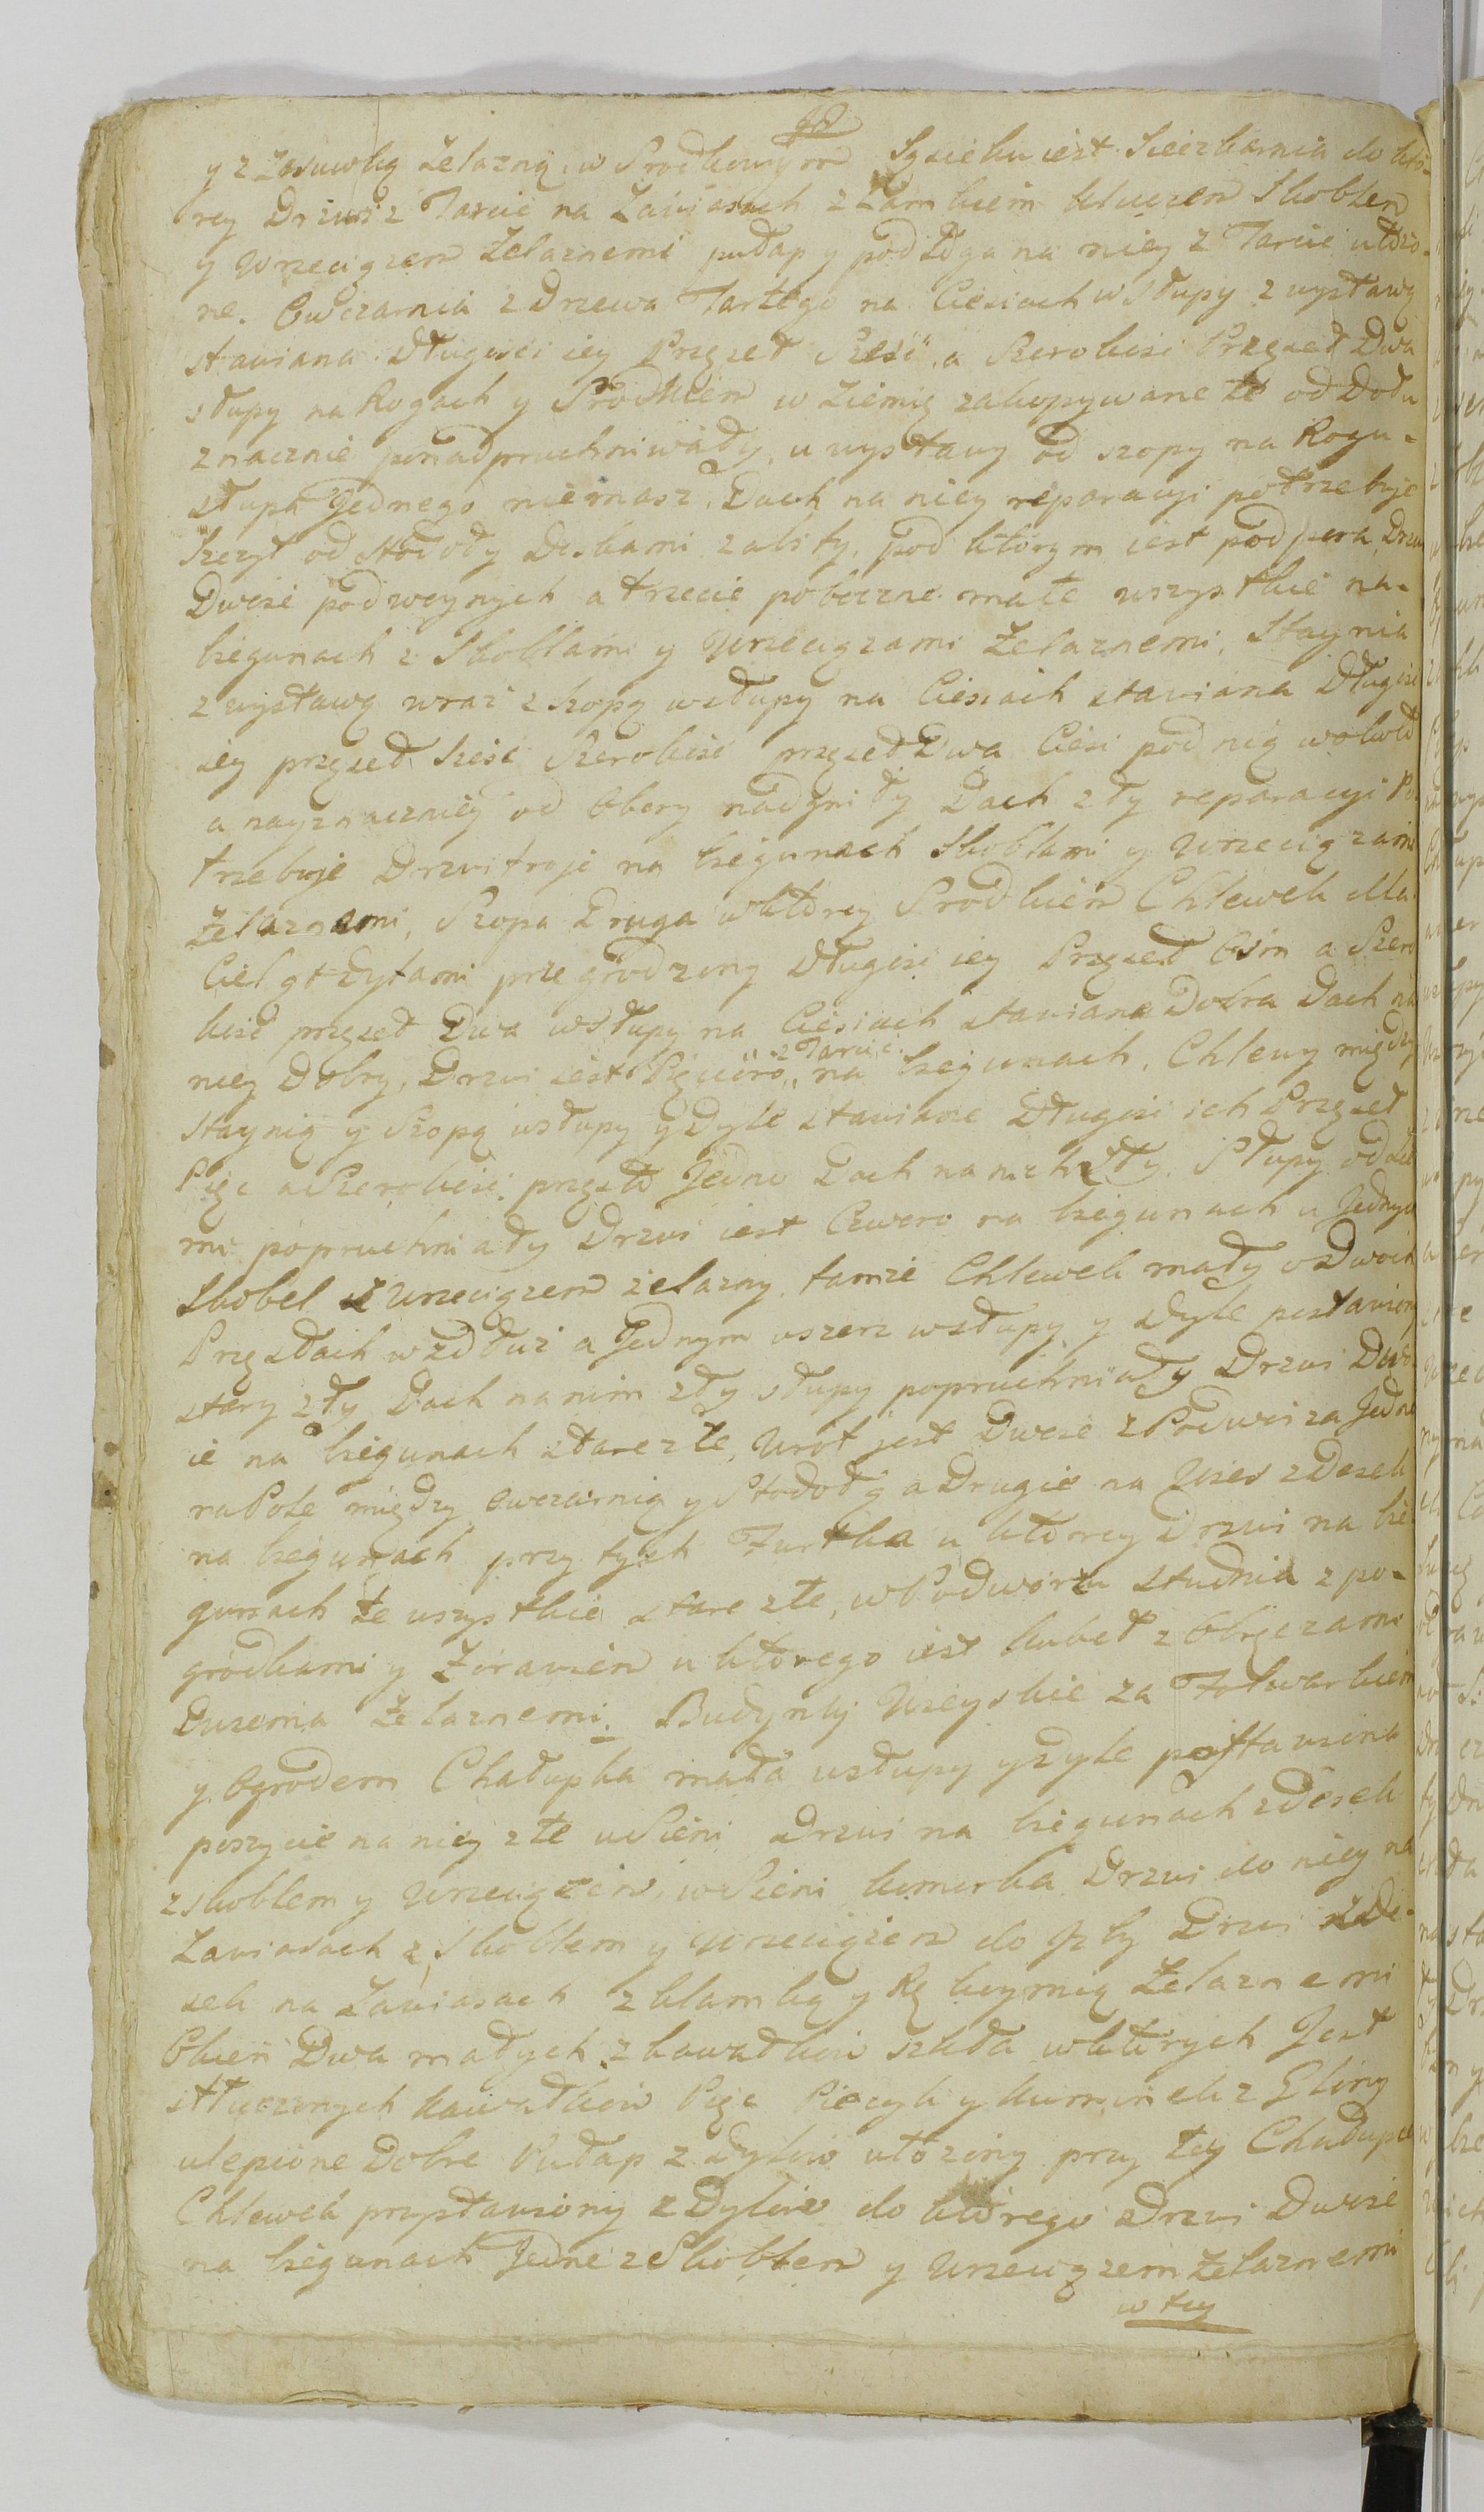 y z Zasuwką żelazną, w Srodkowym Sąsieku iest Sieczkarnia do któ-
rey Drzwi z Tarcic na Zawiasach z Zamkiem kluczem Skoblem
y Wrzeciązem Żelaznemi pułap y podłoga na niey z Tarcic ułożo-
ne. Owczarnia z Drzewa Tartego na Ciesiach w Słupy z wystawą
stawiana Długości iey Przęseł Sześć, a Szerokości Przęseł Dwa
słupy na Rogach y Srodkiem w Ziemię zakopywane te od Dołu
znacznie ponadpruchniwiały, u wystawy od szopy na Rogu
słupa Jednego niemasz. Dach na niey reparacyi potrzebuje
Szczyt od Stodoły Deskami zabity, pod którym iest podpora, Drzwi
Dwoie podwoynych a trzecie poboczne małe wszystkie na
biegunach z Skoblami y Wrzeciązami Żelaznemi. Staynia
z wystawą wraz z Szopą w słupy na Ciesiach stawiana Długości
iey przęseł Sześć Szerokości przęseł Dwa Ciesi pod nią wokoło
a nayznaczniey od Obory nadgniły Dach zły reparacyi Po-
trzebuje Drzwi troje na biegunach Skoblami y Wrzeciązami
Żelaznemi, Szopa Druga w którey Srodkiem Chlewek dla
Cieląt Dylami przegrodzony Długości iey Przęseł Ośm a Szero
kości przęseł Dwa w Słupy na Ciesiach stawiana Dobra Dach na
niey Dobry, Drzwi iest Pięcioro z Tarcic na biegunach, Chlewy między
Staynią y Szopą w słupy y Dyle stawiane Długości ich Przęseł
Pięć a Szerokości przęsło Jedno Dach na nich Zły, Słupy od zie
mi popruchniały Drzwi iest Czworo na biegunach u Jednych
Skobel z Wrzeciązem żelazny, tamże Chlewek mały o Dwoch
Przęsłach wzdłuż a Jednym wszerz w słupy y Dyle postawiony
stary zły Dach na nim zły słupy popruchniały Drzwi Dwo-
ie na biegunach stare złe, Wrót jest Dwoie z Podworza Jedne
na Pole między Owczarnią y Stodołą a Drugie na Wieś z Desek
na biegunach przy tych Furtka u którey Drzwi na bie
gunach te wszystkie stare złe, w Podworzu studnia z po-
gródkami y Żorawiem u którego iest kubeł z Obręczami
Dwiema Żelaznemi. Budynki Wieyskie za Folwarkiem
y Ogrodem Chałupka mała w słupy y Dyle postawiona
poszycie na niey złe w Sieni Drzwi na biegunach z Desek
z skoblem y Wrzeciązem, w Sieni komorka Drzwi do niey na
Zawiasach z Skoblem y Wrzeciązem do Izby Drzwi z De-
sek na Zawiasach z klamką y Rękoymią Żelaznemi
Okien Dwa małych z kawałków szkła w których Jest
stłuczonych kawałków Pięć Piecyk y kominek z Gliny
ulepione Dobre Pułap z dylów ułożony przy tey Chałupce
Chlewek przystawiony z Dylów do którego Drzwi Dwoie
na biegunach Jedne ze Skoblem y Wrzeciązem Żelaznemi
w tey